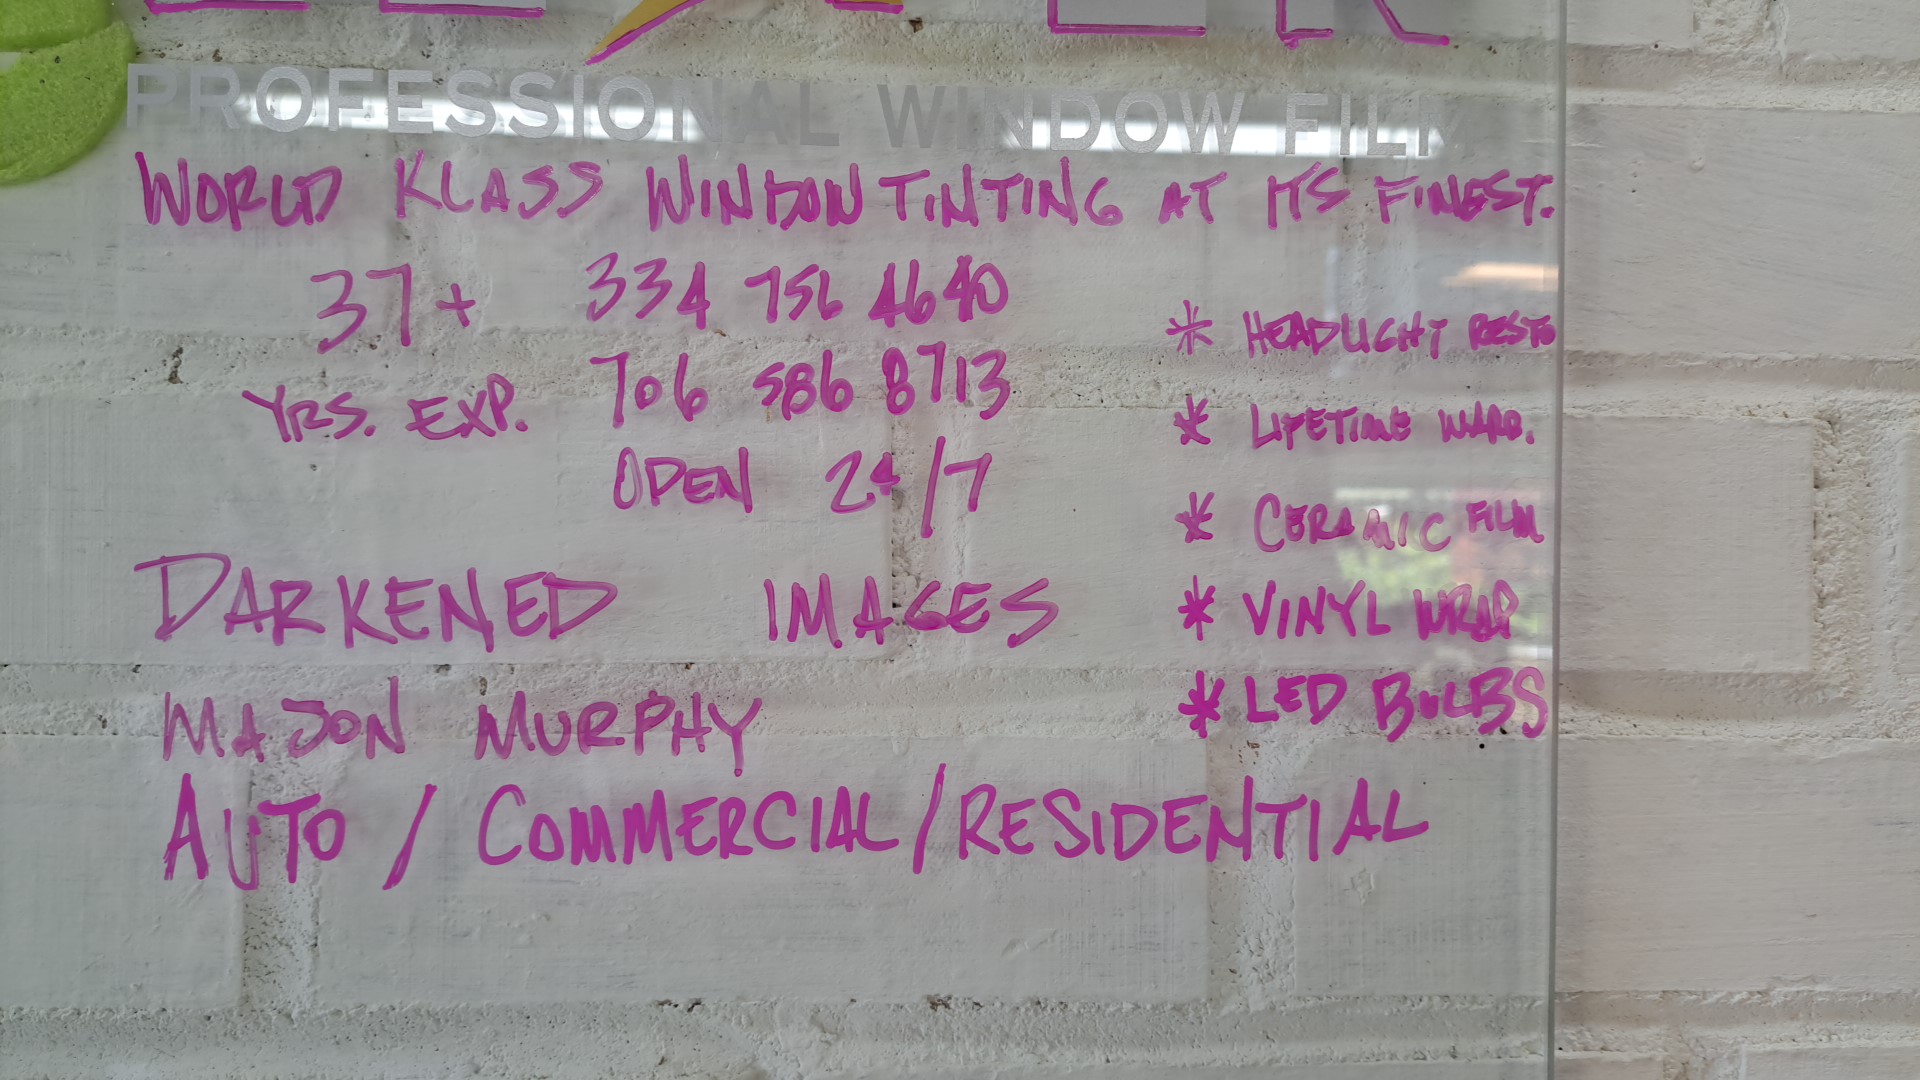 PROFESSIONAL WINDOW FILM
WORLD KLASS WINDOW TINTING AT ITS FINEST.
37+
YRS. EXP.
334 756 4640
706 586 8713
OPEN 24/7
* HEADLIGHT RESTO
* LIFETIME WARR.
* CERAMIC FILM
* VINYL WRAP
* LED BULBS
DARKENED IMAGES
MAJON MURPHY
AUTO / COMMERCIAL / RESIDENTIAL